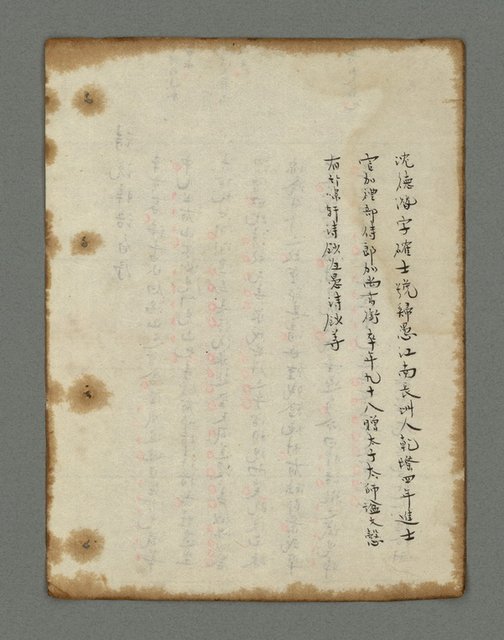 沈德潛字確士號歸愚江南長洲人乾隆四年進士
官至禮部侍郎加尚書銜卒年九十八贈太子太師謚文慤
有竹嘯軒詩鈔歸愚詩鈔等